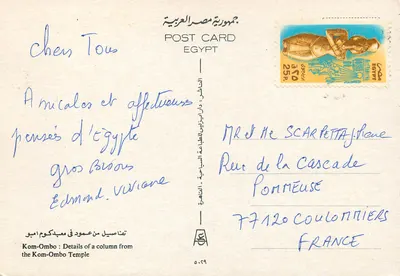 جمهورية مصر العربية
POST CARD
EGYPT
Chers Tous
Amicales et affectueuses
pensées d'Egypte
gros Bisous
Edmond. Viviane
تفاصيل من عمود فى معبد كوم امبو
Kom-Ombo : Details of a column from
the Kom-Ombo Temple
٥٠٢٩
EGYPT
Mr et Me SCARPETTA
Rue de la Cascade
POMMEUSE
77120 COULOMMIERS
FRANCE